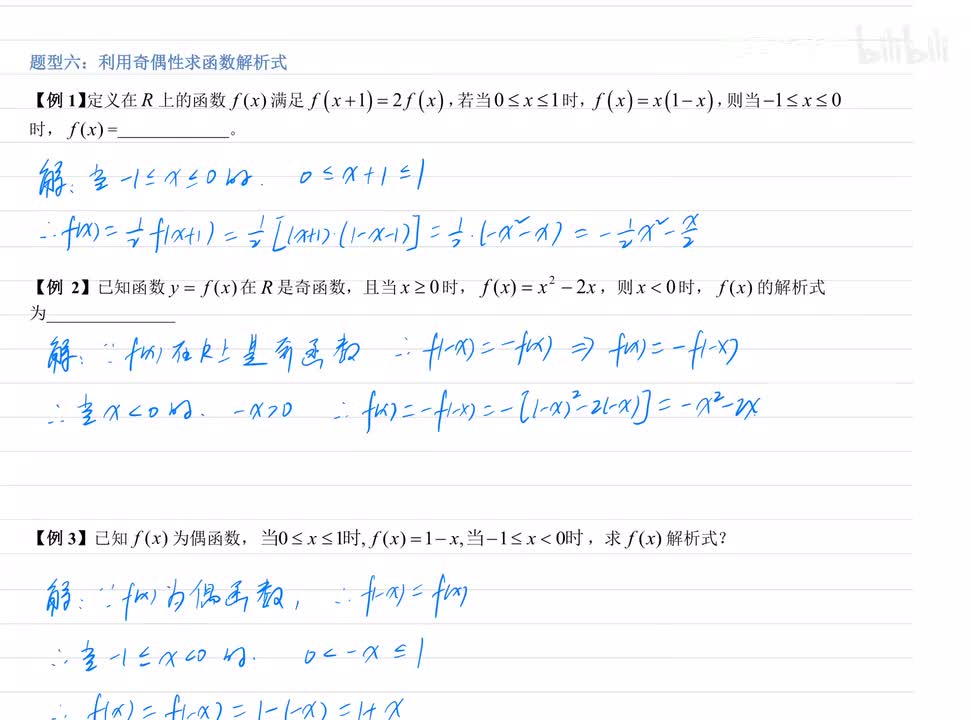 bilibili
题型六：利用奇偶性求函数解析式
【例 1】定义在 R 上的函数 f(x) 满足 f(x+1)=2f(x)，若当 0≤x≤1 时，f(x)=x(1-x)，则当 -1≤x≤0
时，f(x)=____________。
解：当 -1≤x≤0 时． 0≤x+1≤1
∴f(x)=½f(x+1)=½[(x+1)·(1-x-1)]=½·(-x²-x)=-½x²-x/2
【例 2】已知函数 y=f(x) 在 R 是奇函数，且当 x≥0 时，f(x)=x²-2x，则 x<0 时，f(x) 的解析式
为______________
解：∵f(x) 在 R 上是奇函数 ∴f(-x)=-f(x) ⇒ f(x)=-f(-x)
∴当 x<0 时． -x>0 ∴f(x)=-f(-x)=-[(-x)²-2(-x)]=-x²-2x
【例 3】已知 f(x) 为偶函数，当0≤x≤1时,f(x)=1-x,当-1≤x<0时，求 f(x) 解析式？
解：∵f(x) 为偶函数, ∴f(-x)=f(x)
∴当 -1≤x<0 时． 0<-x≤1
∴f(x)=f(-x)=1-(-x)=1+x